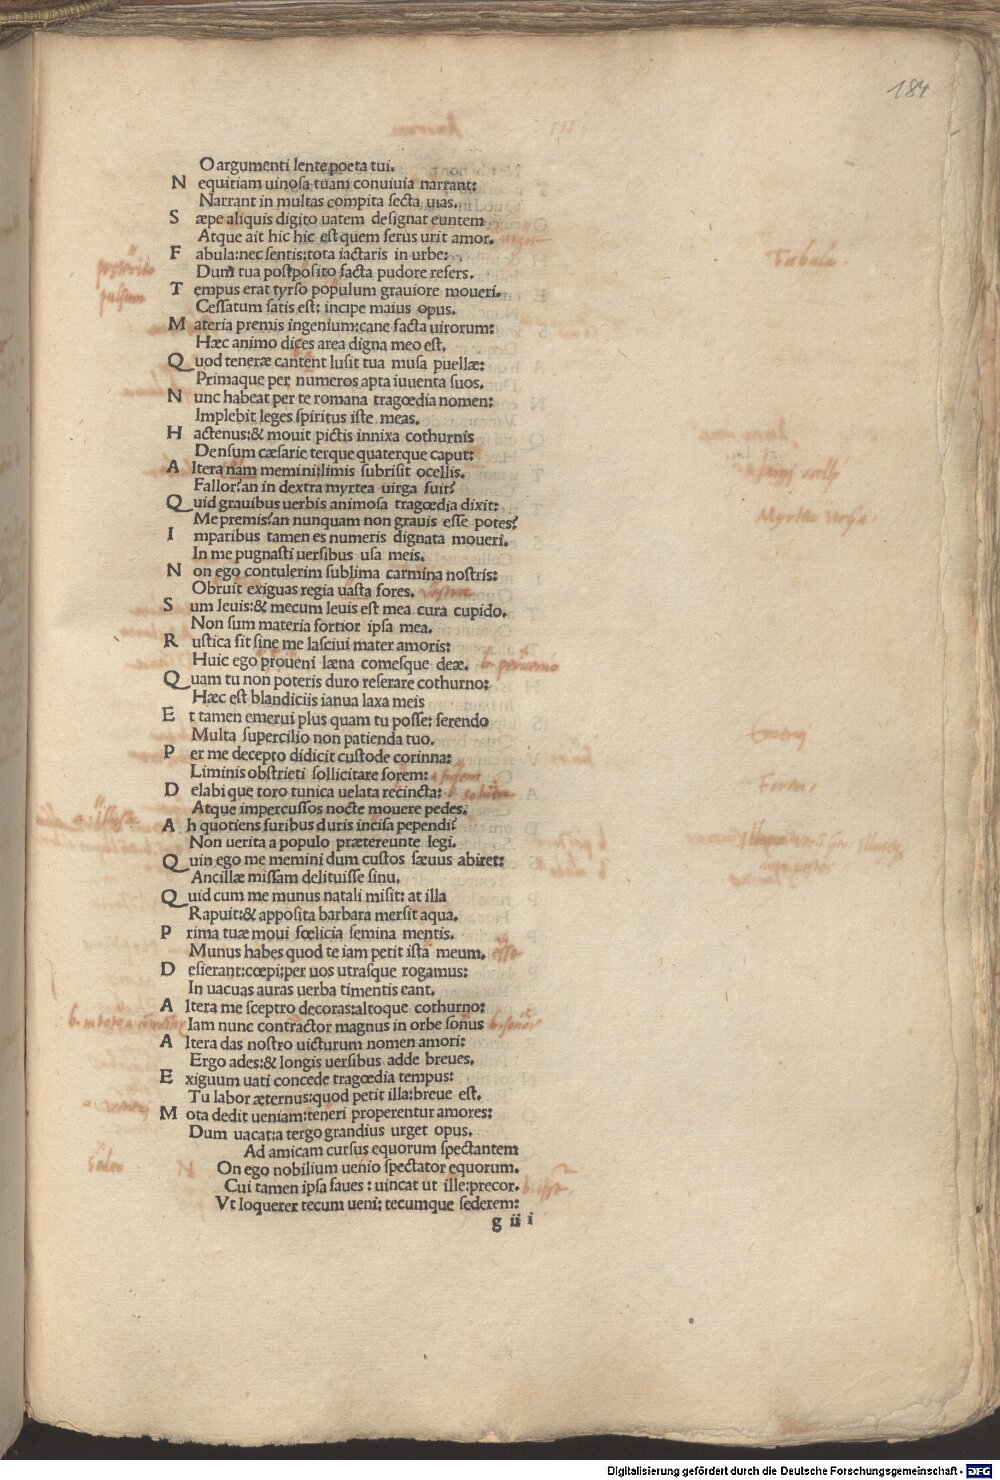 184
O argumenti lente poeta tui.
N equitiam uinosa tuam conuiuia narrant:
Narrant in multas compita secta uias.
S æpe aliquis digito uatem designat euntem
Atque ait hic hic est quem ferus urit amor.
F abula: nec sentis: tota iactaris in urbe:
Fabula
Dum tua postposito facta pudore refers.
T empus erat tyrso populum grauiore moueri.
pulsum
Cessatum satis est: incipe maius opus.
M ateria premis ingenium: cane facta uirorum:
Hæc animo dices area digna meo est.
Q uod teneræ cantent lusit tua musa puellæ:
Primaque per numeros apta iuuenta suos.
N unc habeat per te romana tragœdia nomen:
Implebit leges spiritus iste meas.
H actenus: & mouit pictis innixa cothurnis
Densum cæsarie terque quaterque caput:
A ltera nam memini: limis subrisit ocellis.
Fallor? an in dextra myrtea uirga fuit?
Q uid grauibus uerbis animosa tragœdia dixit:
Myrtea virga.
Me premis? an nunquam non grauis esse potes?
I mparibus tamen es numeris dignata moueri.
In me pugnasti uersibus usa meis.
N on ego contulerim sublima carmina nostris:
Obruit exiguas regia uasta fores.
S um leuis: & mecum leuis est mea cura cupido.
Non sum materia fortior ipsa mea.
R ustica sit sine me lasciui mater amoris:
Huic ego proueni læna comesque deæ.
Q uam tu non poteris duro reserare cothurno:
Hæc est blandiciis ianua laxa meis
E t tamen emerui plus quam tu posse: ferendo
Multa supercilio non patienda tuo.
P er me decepto didicit custode corinna:
Liminis obstrieti sollicitare forem:
D elabique toro tunica uelata recincta:
Atque impercussos nocte mouere pedes.
A h quotiens furibus duris incisa pependi?
Non uerita a populo prætereunte legi.
Q uin ego me memini dum custos sæuus abiret:
Ancillæ missam delituisse sinu.
Q uid cum me munus natali misit: at illa
Rapuit: & apposita barbara mersit aqua.
P rima tuæ moui fœlicia semina mentis.
Munus habes quod te iam petit ista meum.
D esierant: cœpi: per uos utrasque rogamus:
In uacuas auras uerba timentis eant.
A ltera me sceptro decoras: altoque cothurno:
Iam nunc contractor magnus in orbe sonus
A ltera das nostro uicturum nomen amori:
Ergo ades: & longis uersibus adde breues.
E xiguum uati concede tragœdia tempus:
Tu labor æternus: quod petit illa: breue est.
M ota dedit ueniam: teneri properentur amores:
Dum uacat: a tergo grandius urget opus.
Ad amicam cursus equorum spectantem
N On ego nobilium uenio spectator equorum.
Cui tamen ipsa faues: uincat ut ille: precor.
Vt loquerer tecum ueni: tecumque sederem:
g iii
Digitalisierung gefördert durch die Deutsche Forschungsgemeinschaft - DFG